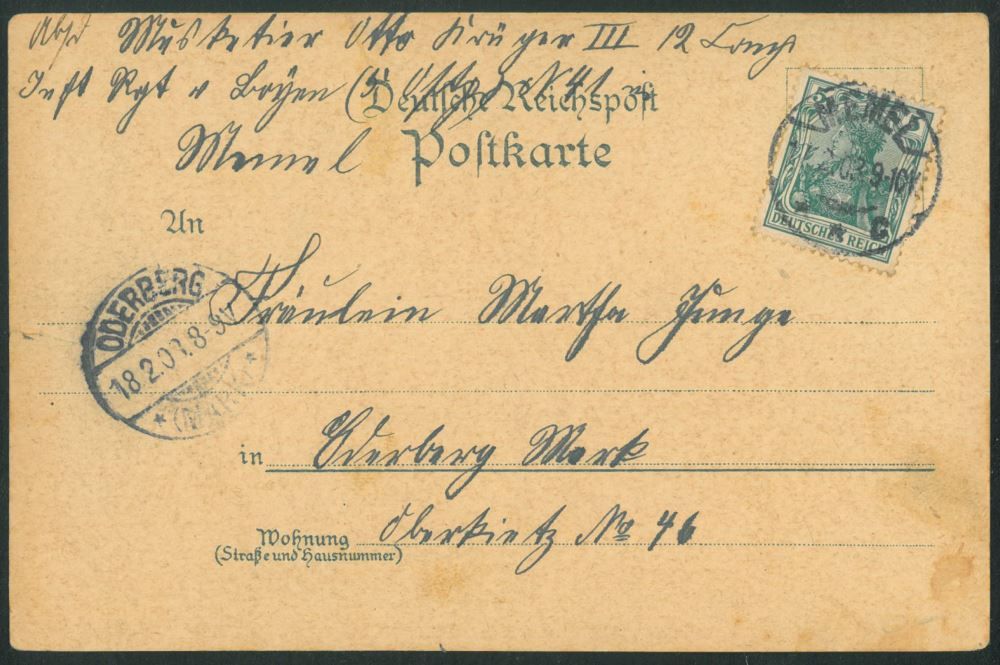 Abs Musketier Otto Krüger III 12 Comp
Inft Rgt v Boyen (5 Ostpr) N 41
Deutsche Reichspost
Memel
Postkarte
MEMEL
03.9-10V
* C
DEUTSCHES REICH
An
Fräulein Martha Junge
ODERBERG
18.2.03.8-9V
* (MARK) *
in Oderberg Mark
Wohnung Oberkietz No 46
(Straße und Hausnummer)